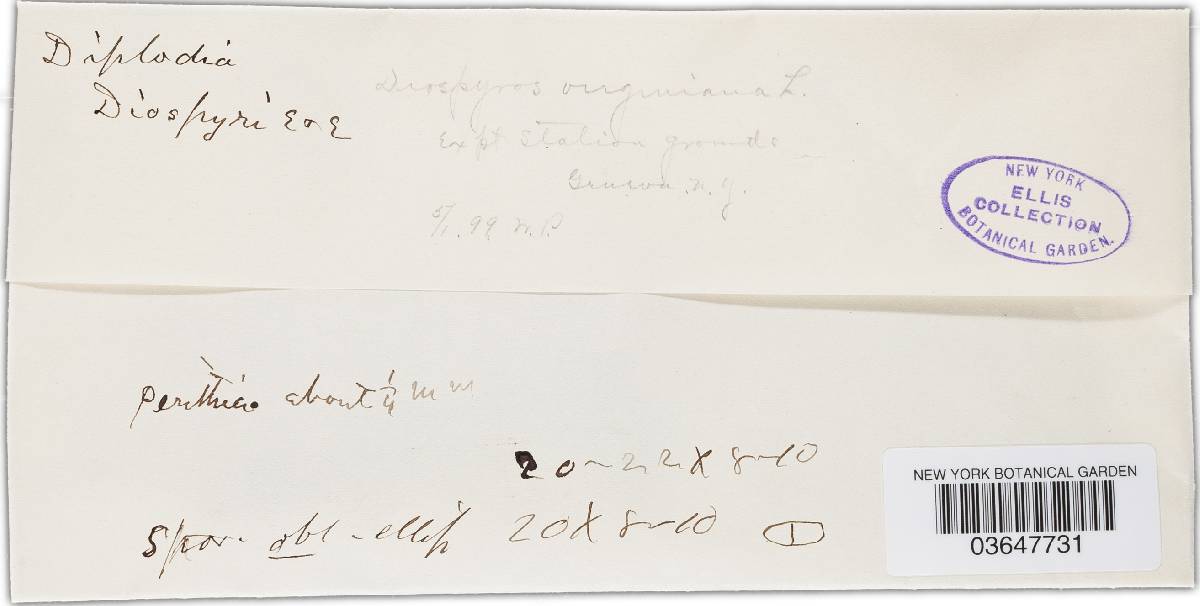 Diplodia
Diospyri E & E
Diospyros virginiana L.
Expt Station grounds
Geneva, N.Y.
5/1.99
NEW YORK
ELLIS
COLLECTION
BOTANICAL GARDEN.
Perithecia about 1/4 mm
20-22 X 8-10
Spor. obl-ellip 20 X 8-10
NEW YORK BOTANICAL GARDEN
03647731